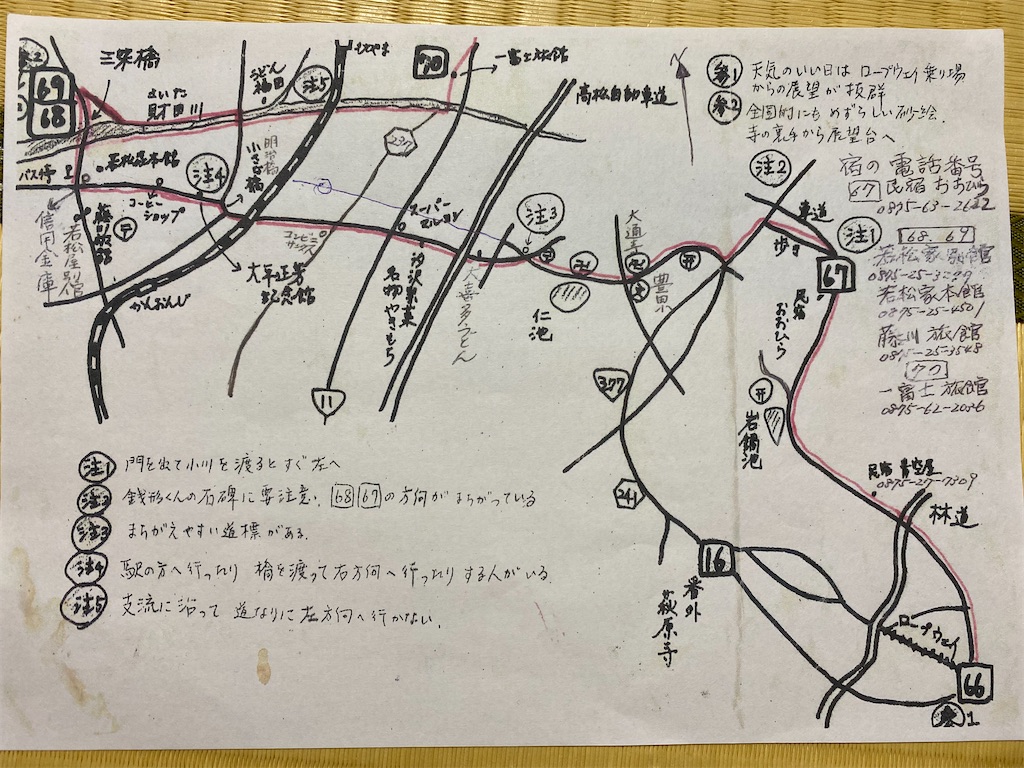 参2
三架橋
69
68
さいた
財田川
うどん
福田
注5
もとやま
70
一富士旅館
高松自動車道
237
明治橋
小さな橋
バス停
若松屋本館
コーヒー
ショップ
注4
信用金庫
若松屋別館
藤川旅館
〒
大平正芳
記念館
コンビニ
サンクス
スーパー
マルヨシ
注3
かんおんじ
11
名物やきもち
大喜多うどん
仁池
卍
大通寺
卍
豊田小
377
241
16
番外
萩原寺
参1
天気のいい日は ロープウェイ乗り場
からの展望が抜群
参2
全国的にも めずらしい砂絵.
寺の裏手から展望台へ
注2
車道
歩き
注1
67
民宿
おおひら
岩鍋池
宿の電話番号
67
民宿 おおひら
0875-63-2622
68.69
若松家別館
若松家本館
0875-25-4501
藤川旅館
0875-25-3548
70
一富士旅館
0875-62-2036
民宿 青空屋
0875-27-7309
林道
ロープウェイ
66
参1
注1 門を出て小川を渡るとすぐ左へ
注2 銭形くんの石碑に要注意. 68 67の方向がまちがっている
注3 まちがえやすい道標がある.
注4 駅の方へ行ったり 橋を渡って右方向へ行ったりする人がいる.
注5 支流に沿って 道なりに左方向へ行かない.